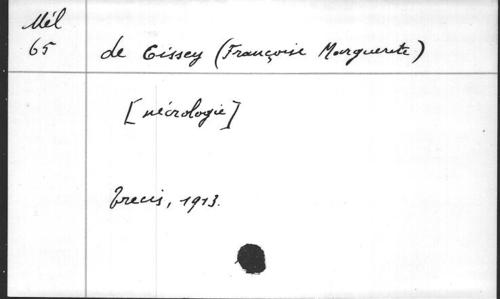 Mél
65
de Cissey (Françoise Marguerite)
[nécrologie]
Precis, 1913.